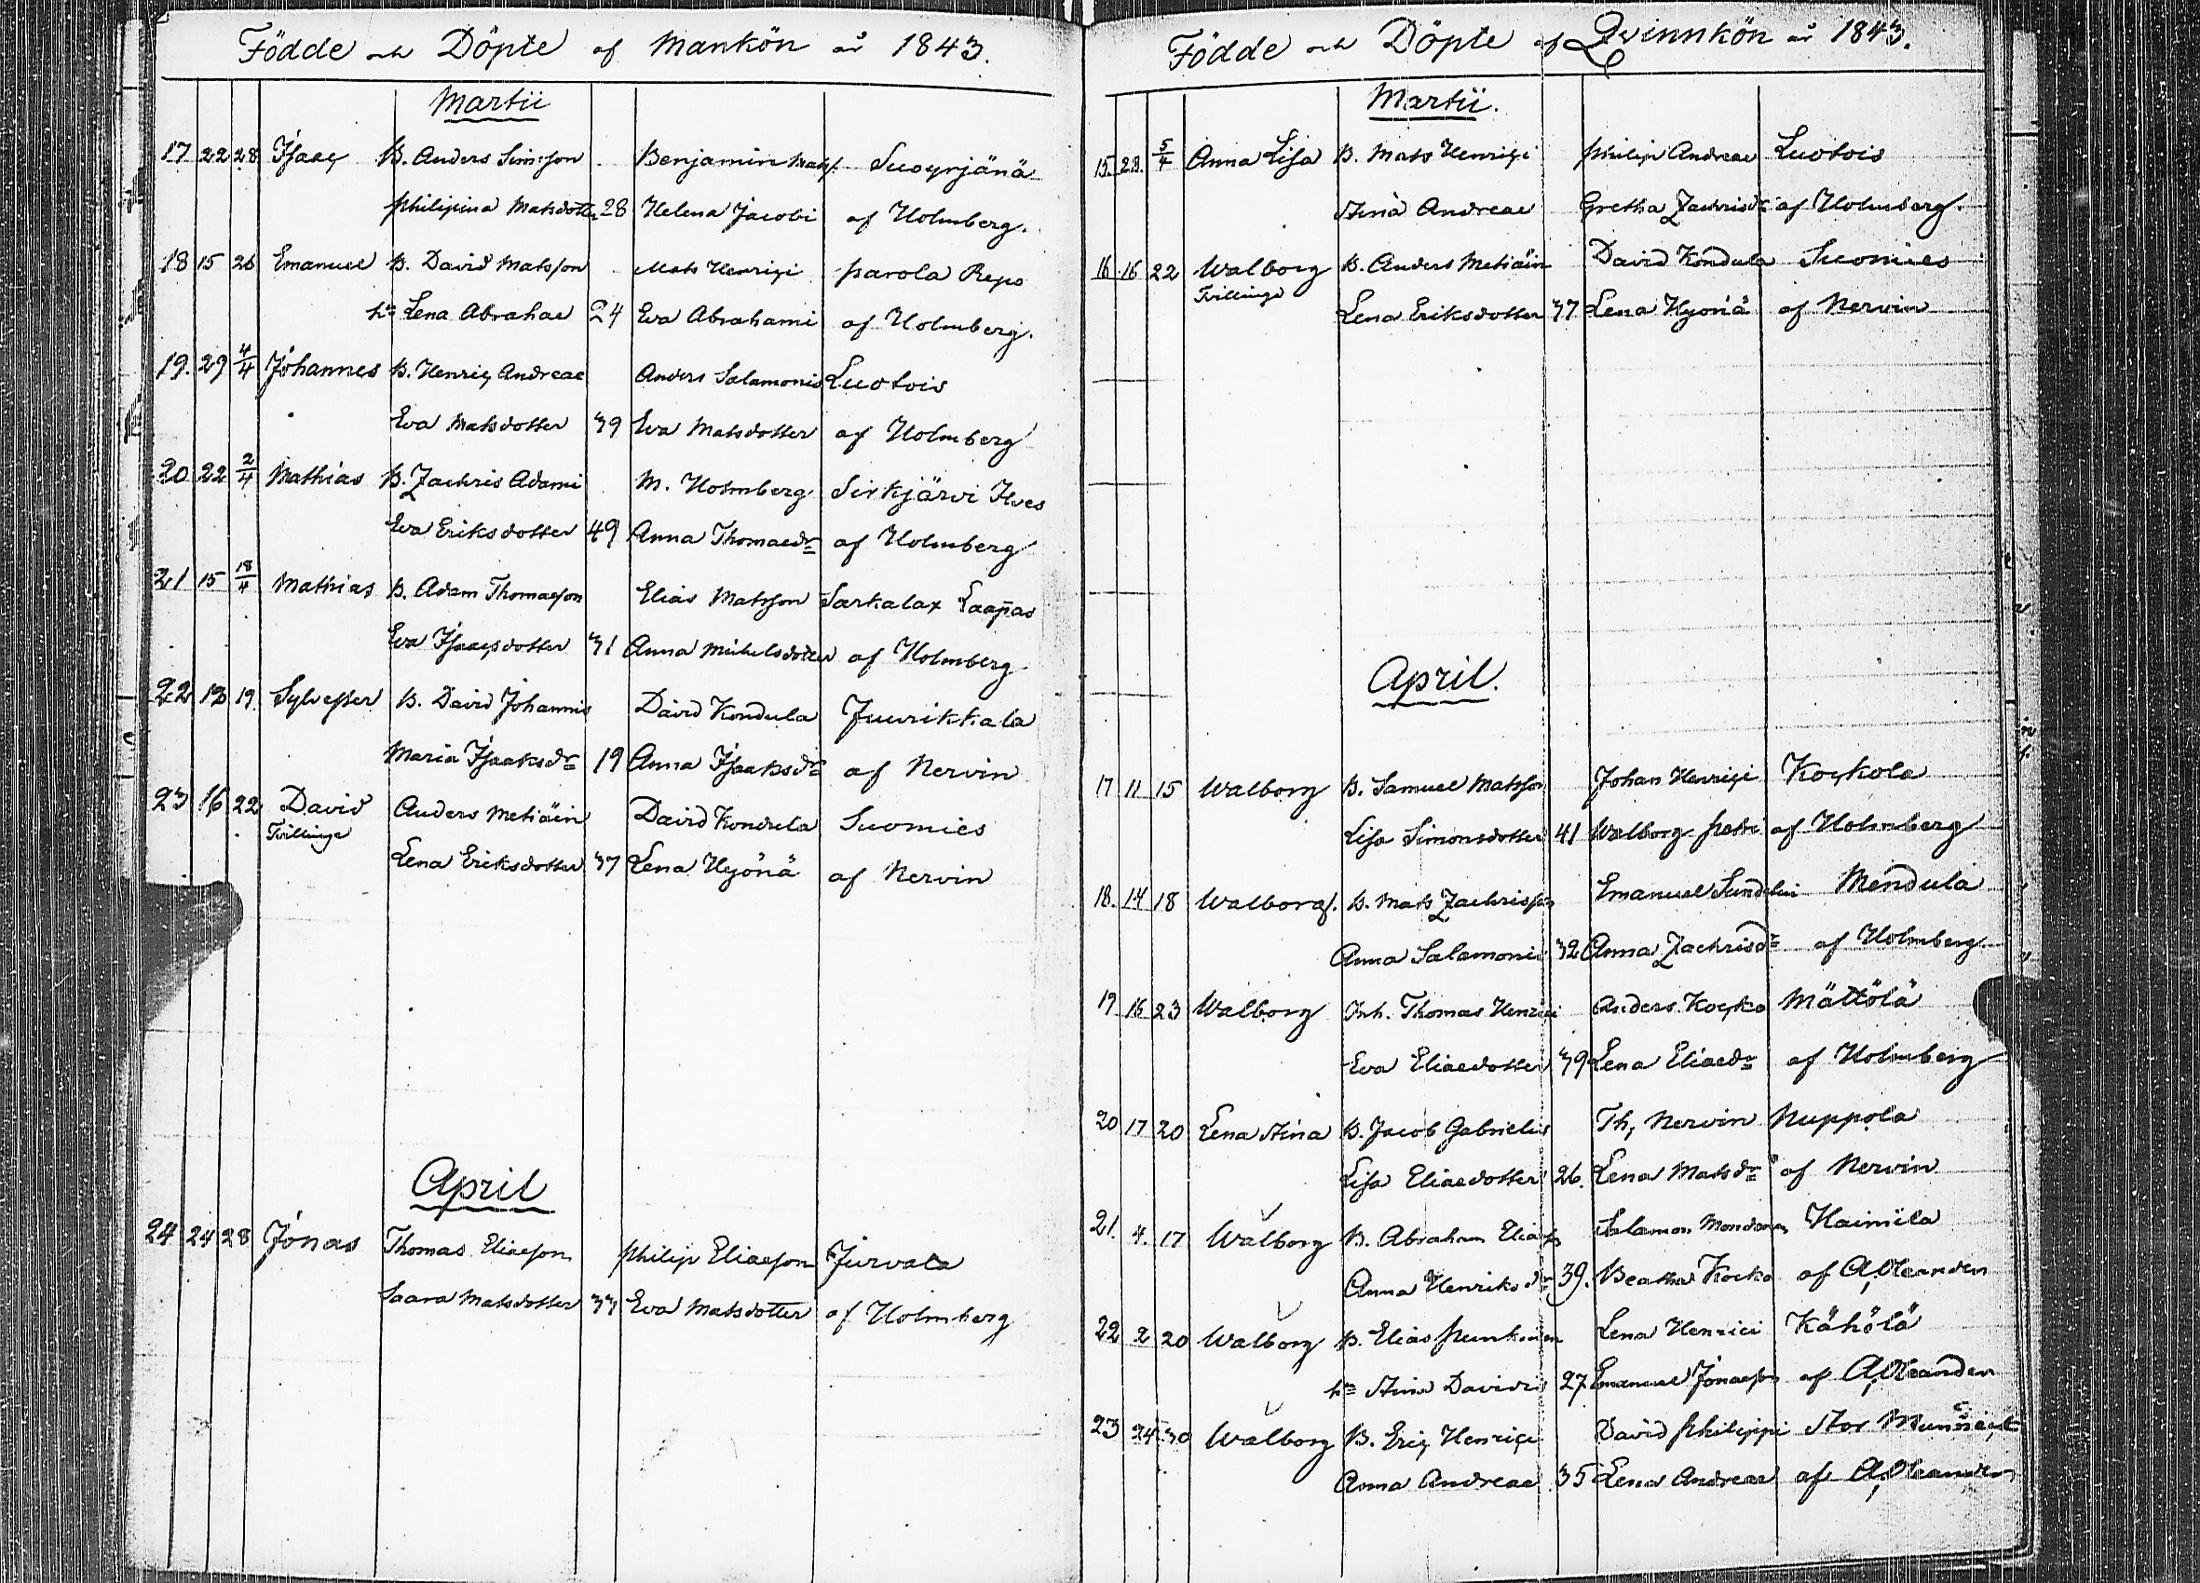 Födde och Döpte af Mankön år 1843.
Martii
17. 22 28 Isaac B. Anders Simsson Benjamin Matss. Suoyrjänä
Philipina Matsdotter 28 Helena Jacobi af Holmberg.
18 15 26 Emanuel B. David Matsson Mats Henrici Parola Repo
h:u Lena Abrahae 24 Eva Abrahami af Holmberg.
19. 29 4/4 Johannes B. Henric Andreae Anders Salamonis Luotois
Eva Matsdotter 39 Eva Matsdotter af Holmberg
20 22 2/4 Mathias B. Zachris Adami M. Holmberg Sirkjärvi Ilves
Eva Eriksdotter 49 Anna Thomaedr af Holmberg
21 15 18/4 Mathias B. Adam Thomaeson Elias Matsson Sarkalax Laapas
Eva Isaacsdotter 31 Anna Michelsdotter af Holmberg
22 13 19. Sylvester B. David Johannis David Kondula Juurikkala
Maria Isaaksdr 19 Anna Isaaksdr af Nervin
23 16 22 David Anders Metiäin David Kondula Suomies
Tvillinge
Lena Eriksdotter 37 Lena Hyönä af Nervin
April
24 24 28 Jonas Thomas Eliaeson Philip Eliaeson Jurvala
Saara Matsdotter 33 Eva Matsdotter af Holmberg
Födde och Döpte af Qvinnkön år 1843.
Martii.
15. 28. 5/4 Anna Lisa B. Mats Henrici Philip Andreae Luotois
Stina Andreae Gretha Zachrisdr af Holmberg.
16 16 22 Walborg B. Anders Metiäin David Kondula Suomies
Tvillinge
Lena Eriksdotter 37 Lena Hyönä af Nervin
April.
17 11 15 Walborg B. Samuel Matsson Johan Henrici Kockola
Lisa Simonsdotter 41 Walborg Petri af Holmberg
18. 14 18 Walborg. B. Mats Zachrisson Emanuel Sundelin Mendula
Anna Salamonis 32 Anna Zachrisdr af Holmberg
19 16 23 Walborg Inh. Thomas Henrici Anders Kocko Mättölä
Eva Eliaedotter 39 Lena Eliaedr af Holmberg
20 17 20 Lena Stina B. Jacob Gabrielis Th, Nervin Nuppola
Lisa Eliaedotter 26. Lena Matsdr af Nervin
21. 4. 17 Walborg B. Abraham Eliaess Salamon Mondonen Haimila
Anna Henriksdr 39. Beatha Kocko af A, Oleanden
22 2 20 Walborg B. Elias Punkainen Lena Henrici Kähölä
h:u Stina Davidis 27 Emanuel Jonaeson af A, Oleanden
23 24 30 Walborg B. Eric Henrici David Philippi Stor
Anna Andreae 35 Lena Andreae af A, Oleanden